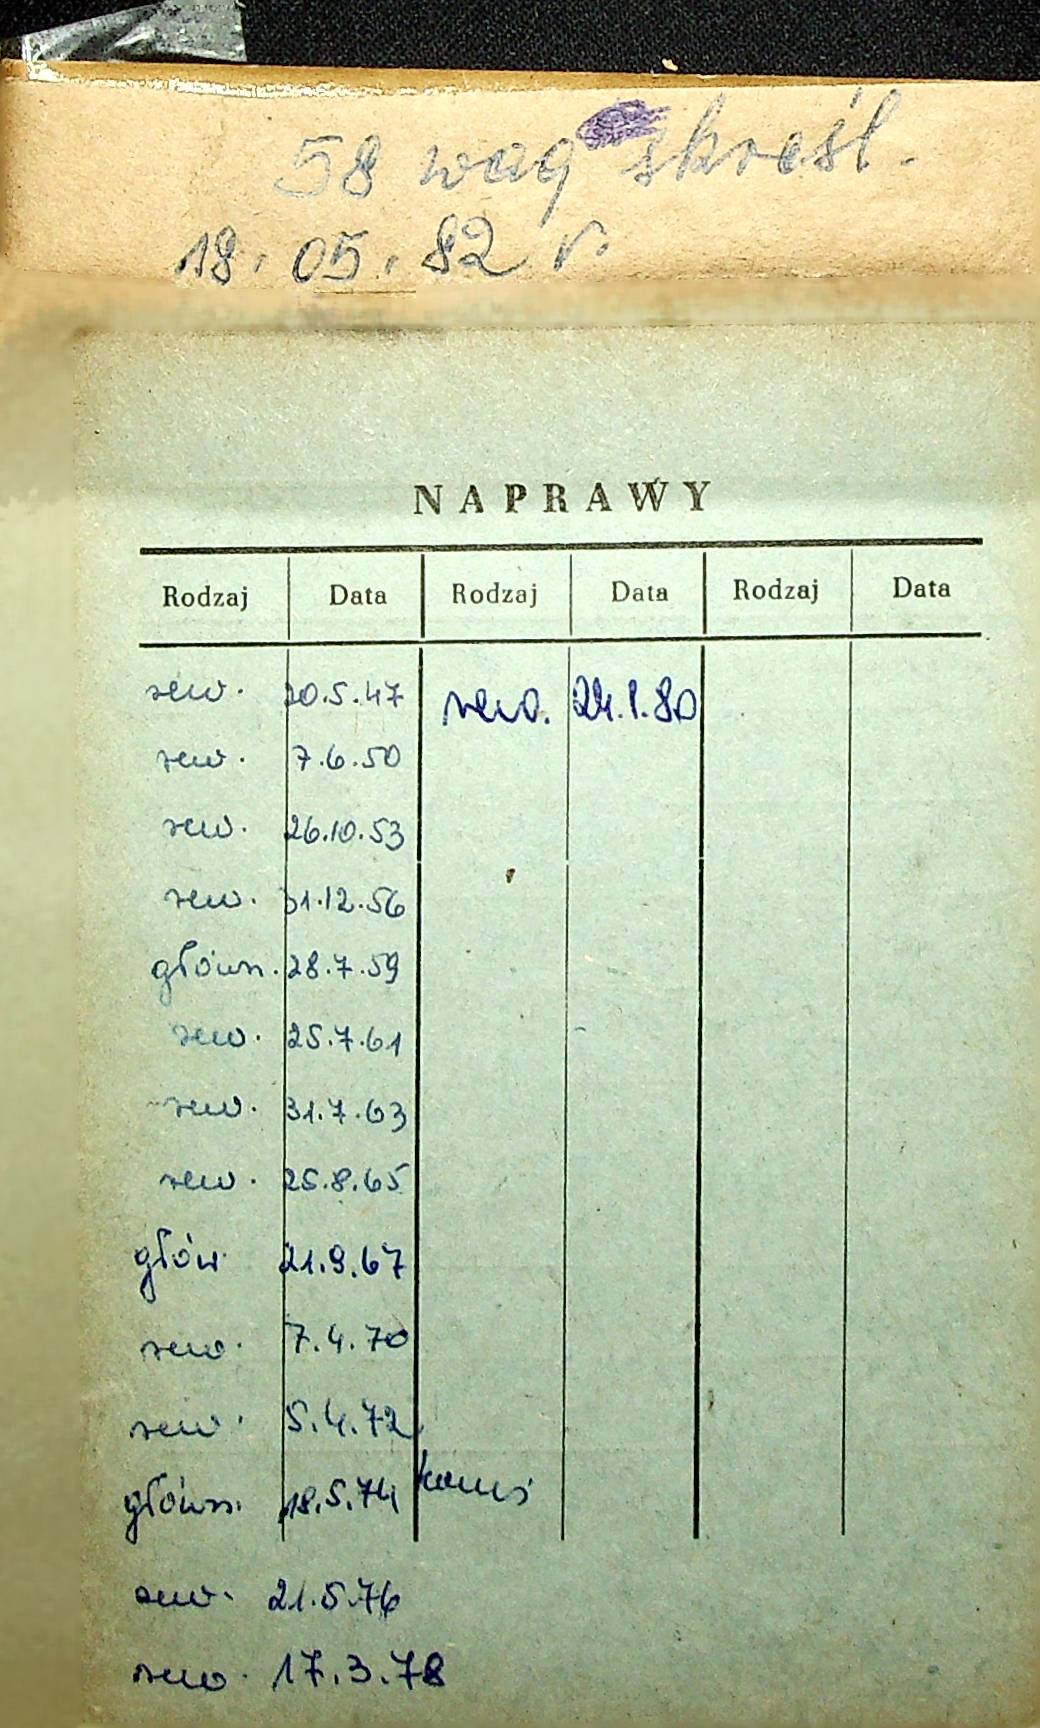 58 wag skreśl.
18.05.82 r.
NAPRAWY
Rodzaj Data Rodzaj Data Rodzaj Data
rew. 20.5.47 rew. 24.1.80
rew. 7.6.50
rew. 26.10.53
rew. 31.12.56
główn. 28.7.59
rew. 25.7.61
rew. 31.7.63
rew. 25.8.65
głów. 21.9.67
rew. 7.4.70
rew. 5.4.72
główn. 18.5.74
rew. 21.5.76
rew. 17.3.78